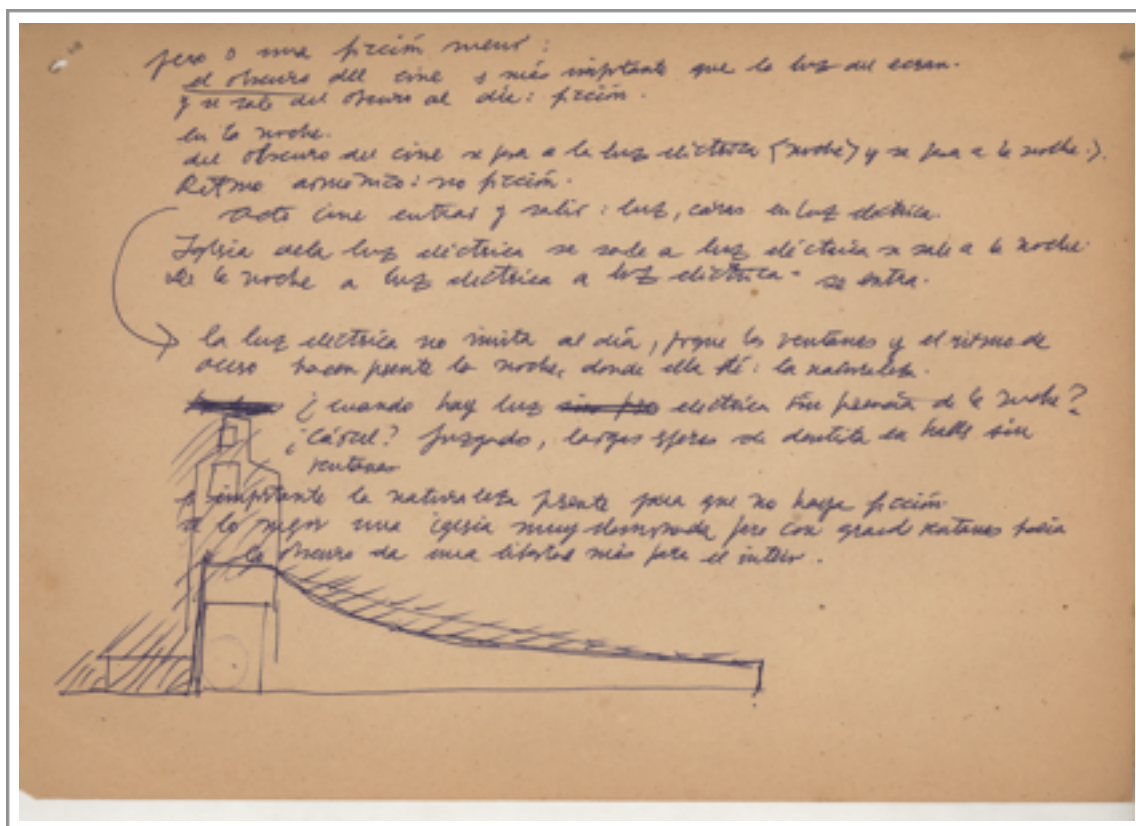 pero o una ficción menor:
el obscuro del cine s más importante que la luz del ecran.
y se sale del obscuro al día: ficción.
en la noche.
del obscuro del cine se pasa a la luz eléctrica (noche) y se pasa a la noche.).
Ritmo armónico: no ficción.
acto cine entrar y salir: luz, caras en luz eléctrica.
Iglesia de la luz eléctrica se sale a luz eléctrica se sale a la noche.
De la noche a luz eléctrica a luz eléctrica - se entra.
la luz eléctrica no imita al día, porque los ventanes y el ritmo de
acceso hacen presente la noche, donde ella: la naturaleza.
¿cuando hay luz eléctrica sin presencia de la noche?
¿Cárcel? juzgado, largas esperas de dentista en halls sin
ventanas
importante la naturaleza presente para que no haya ficción
a lo mejor una iglesia muy pero con grand ventanas hacia
lo obscuro da una libertad más para el interior.